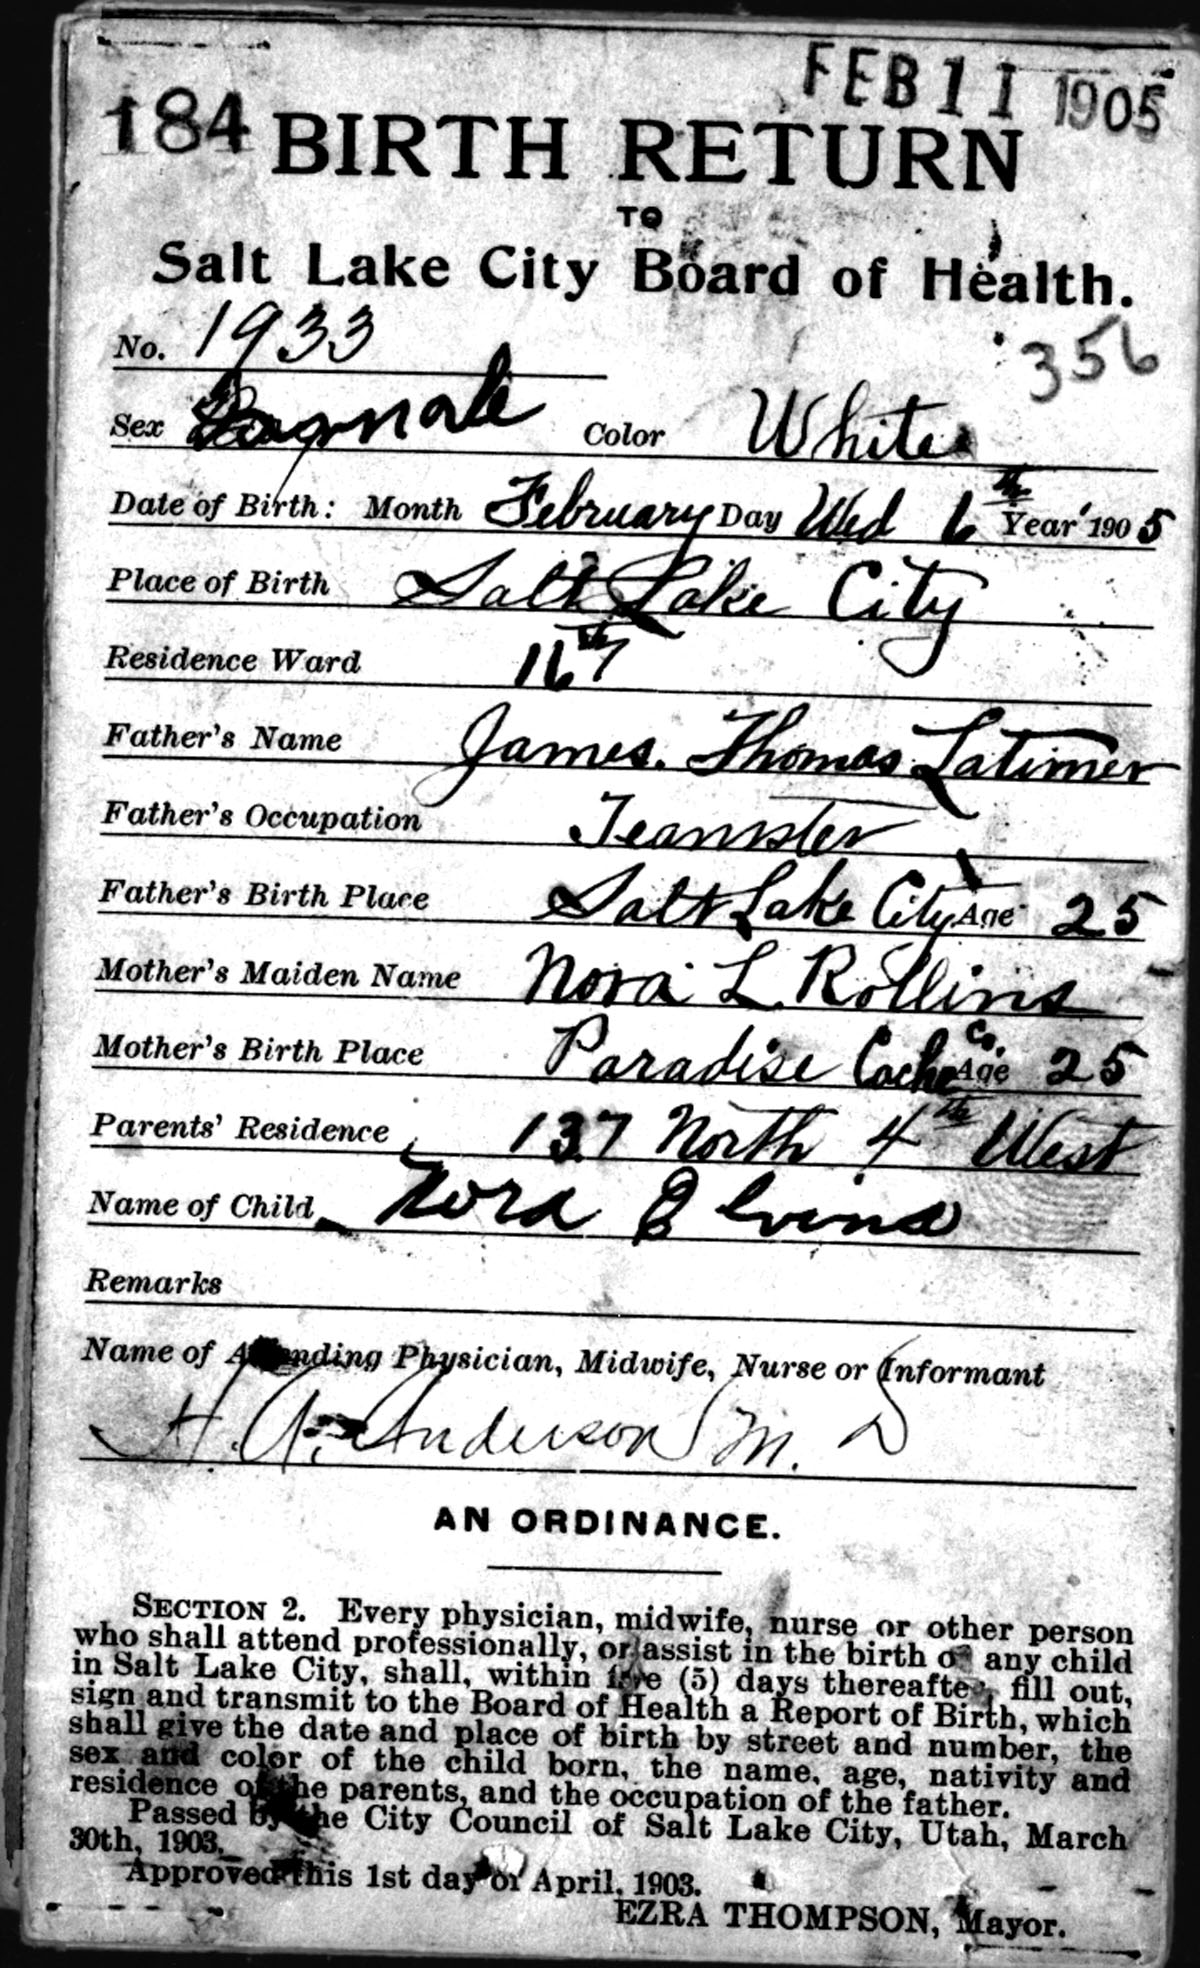 FEB 11 1905
184 BIRTH RETURN
TO
Salt Lake City Board of Health.
No. 1933
356
Sex Color White
Date of Birth: Month February Day Wed 6th Year 1905
Place of Birth Salt Lake City
Residence Ward 16th
Father's Name James. Thomas Latimer
Father's Occupation Teamster
Father's Birth Place Salt Lake City Age 25
Mother's Maiden Name Nora L. Rollins
Mother's Birth Place Paradise Cache Co. Age 25
Parents' Residence 137 North 4th West
Name of Child Nora
Remarks
Name of Attending Physician, Midwife, Nurse or Informant
H. A. Anderson M. D
AN ORDINANCE.
SECTION 2. Every physician, midwife, nurse or other person
who shall attend professionally, or assist in the birth of any child
in Salt Lake City, shall, within five (5) days thereafter, fill out,
sign and transmit to the Board of Health a Report of Birth, which
shall give the date and place of birth by street and number, the
sex and color of the child born, the name, age, nativity and
residence of the parents, and the occupation of the father.
Passed by the City Council of Salt Lake City, Utah, March
30th, 1903.
Approved this 1st day of April, 1903.
EZRA THOMPSON, Mayor.